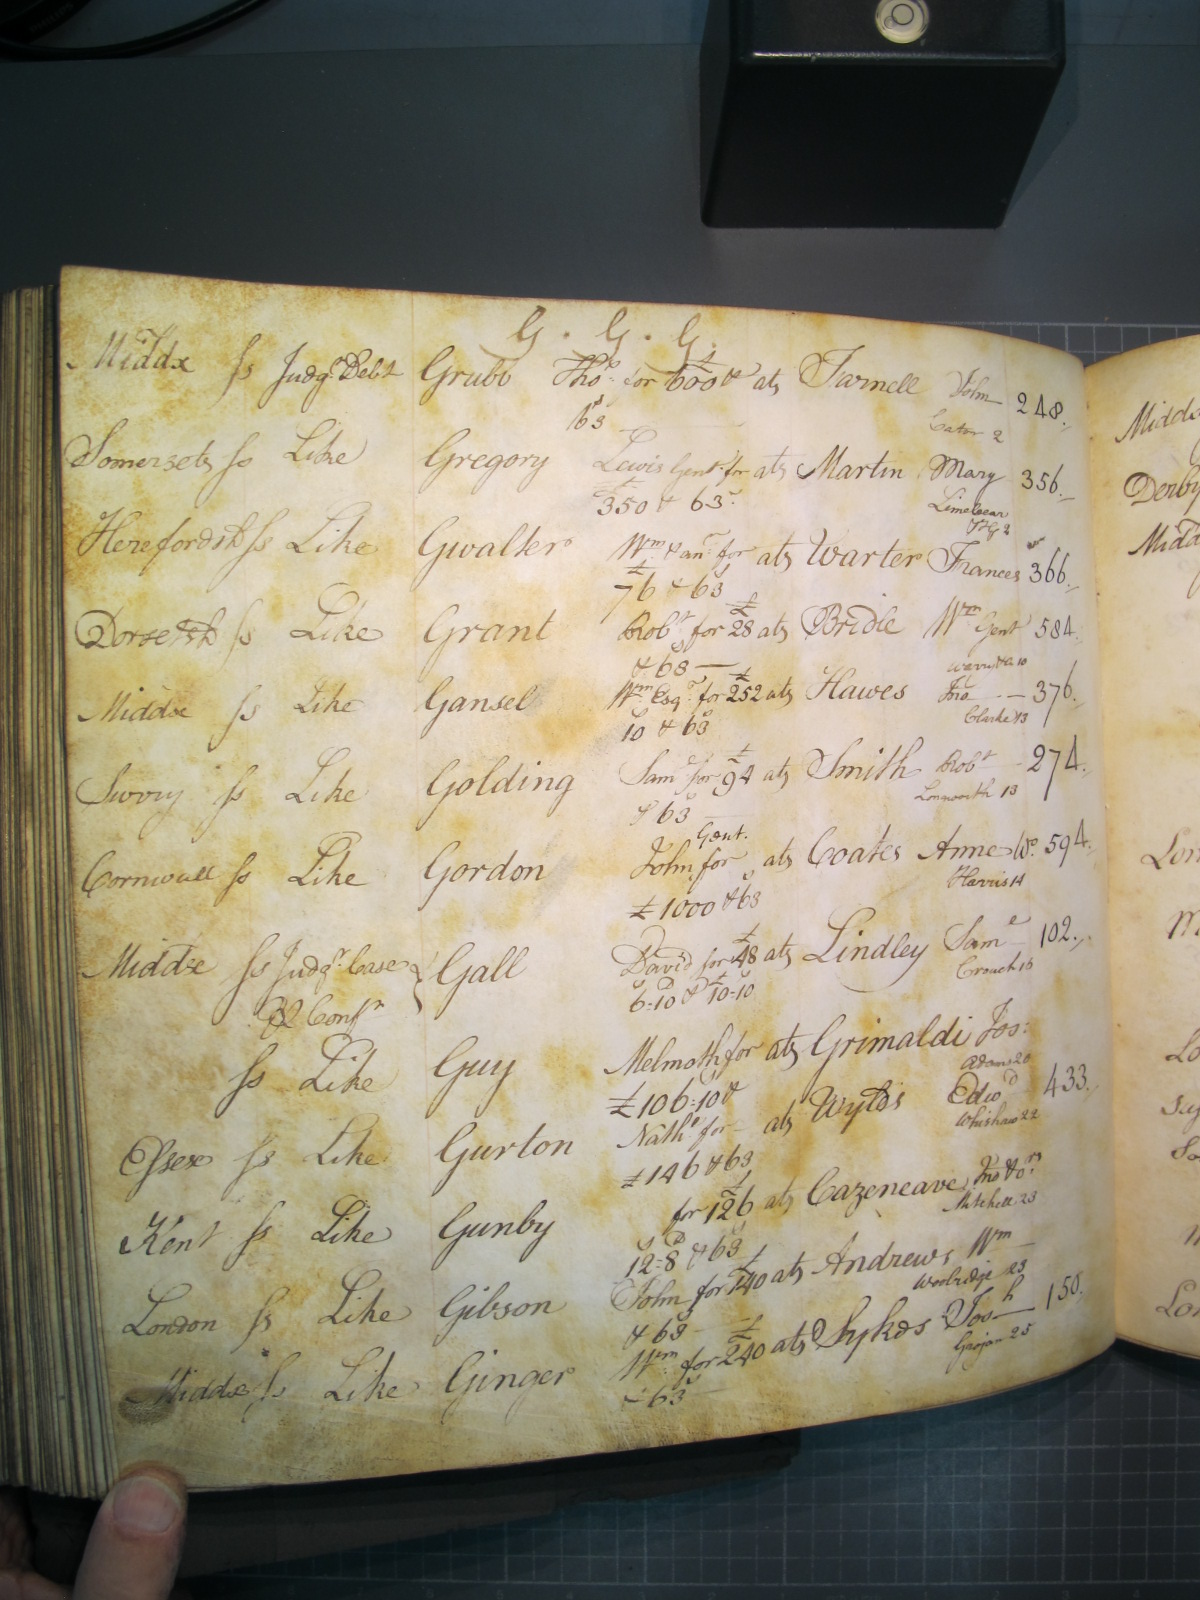 G. G. G.
Middx ss Judgt. Debt Grubb Thos. for £600 & ats Farnell John 248.
63s Cator 2
Somersets ss Like Gregory Lewis Gent. for ats Martin Mary 356.
£350 & 63s. Limebear
Herefordsh ss Like Gwalter Wm & anr. for ats Warter Frances 366.
£76 & 63s
Dorsetsh ss Like Grant Robt. for £28 ats Bridle Wm Gent 584.
& 63s
Middx ss Like Gansel Wm Esqr. for £252 ats Hawes Jno. 376.
10s & 63s Clarke 13
Surry ss Like Golding Saml. for £94 ats Smith Robt 274.
& 63s Longworth 13
Gent.
Cornwall ss Like Gordon John for ats Coates Anne Wo. 594.
£1000 & 63s Harris 14
Middx ss Judgt. Case Gall David for £48 ats Lindley Saml 102.
& Confn 6s-10D & £10-10s Crouch 16
ss Like Guy Melmoth for ats Grimaldi Jos:
£106:10s & Adams 20
Essex ss Like Gurton Nathl for ats Wylds Edwd 433.
£146 & 63s Whishaw 22
Kent ss Like Gunby for £126 ats Cazeneave Jno & ors
12s-8D & 63s Mitchell 23
London ss Like Gibson John for £140 ats Andrews Wm
& 63s Woolridge 23
Middx ss Like Ginger Wm for £240 ats Sykes Josh 150.
& 63s Grojan 25
Midds
Derby
Midd
Lon
M
Lo
Lon